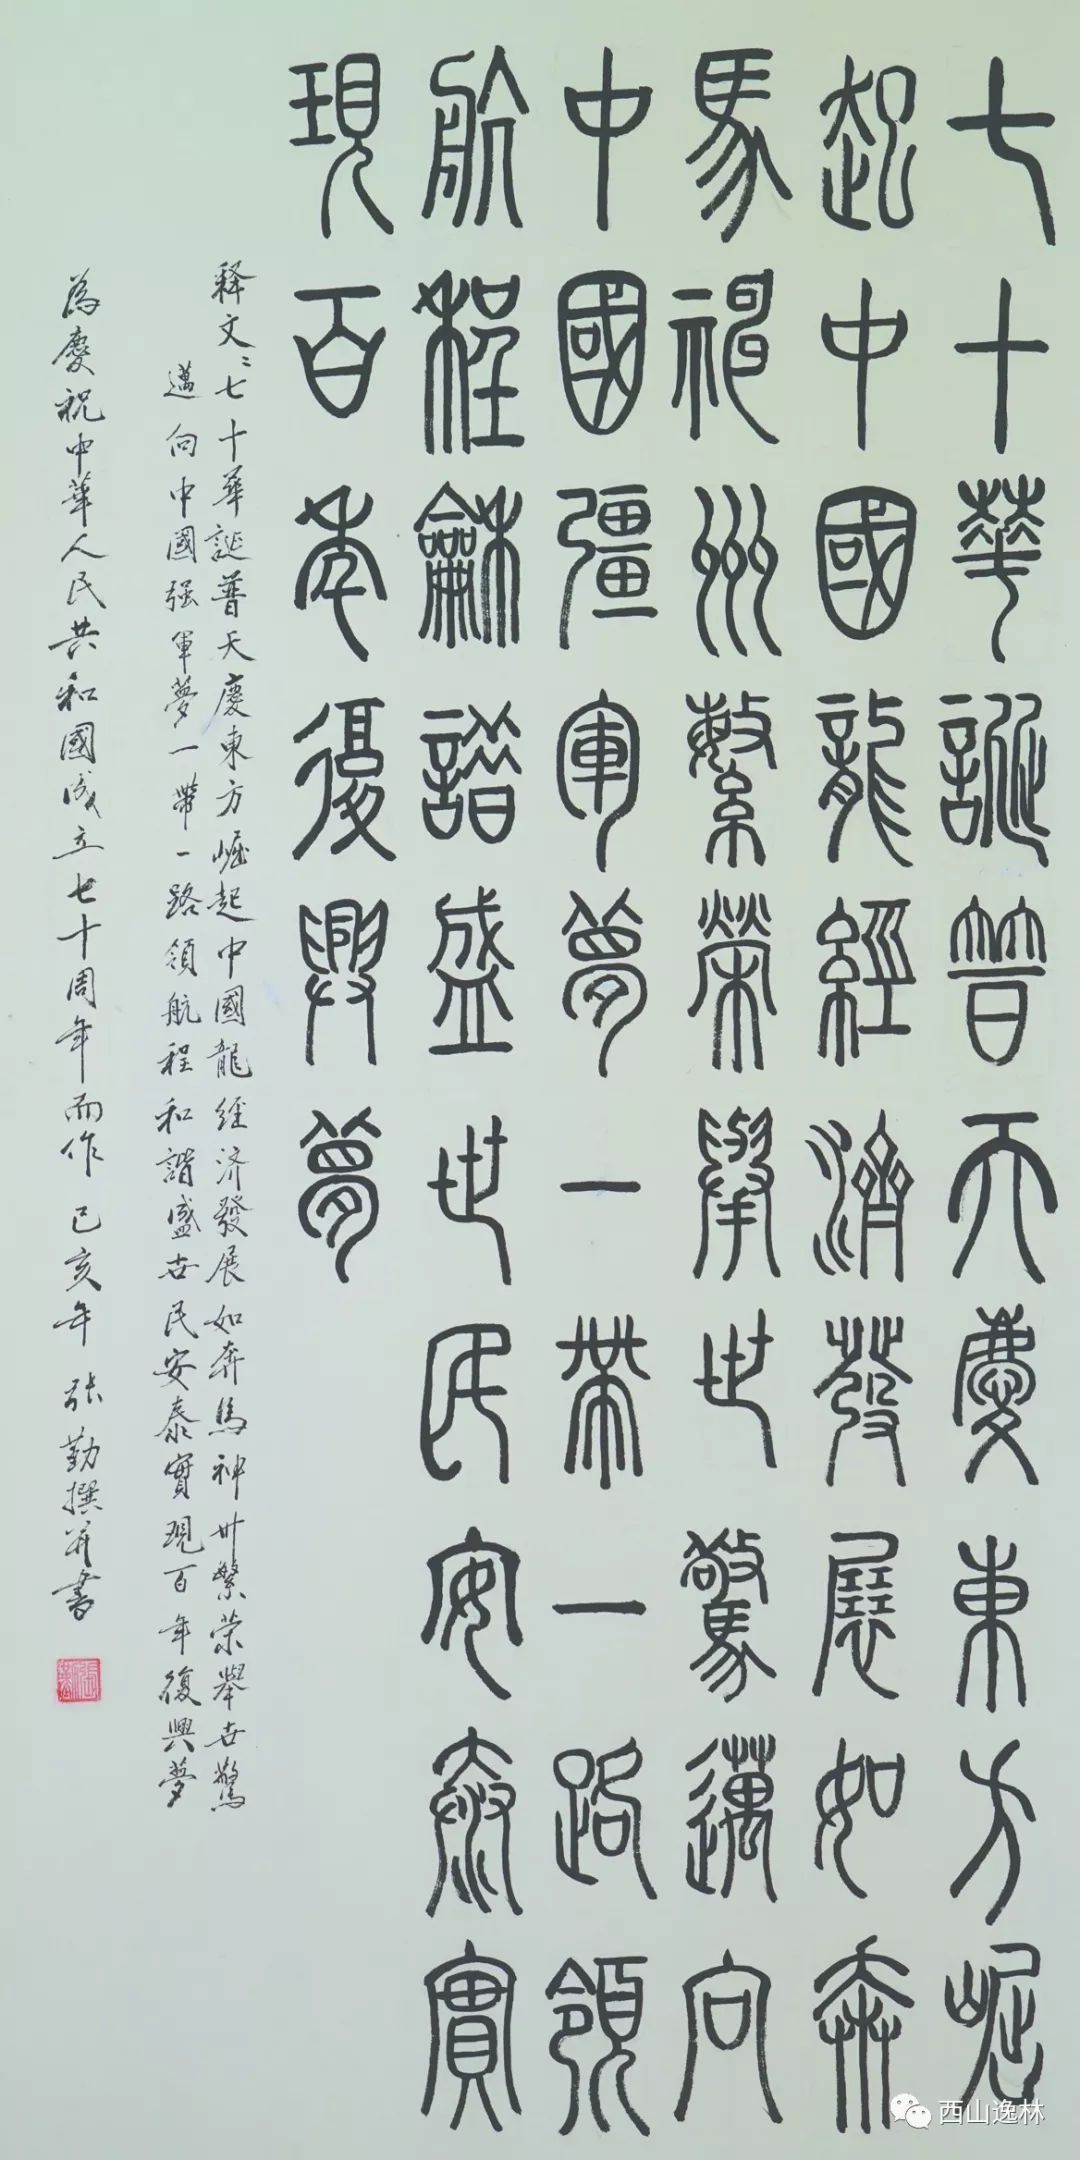 七十華誕普天慶東方崛
起中國龍經濟發展如奔
馬神州繁榮舉世驚邁向
中國彊軍夢一帶一路領
航程龢諧盛世民安泰實
現百年復興夢
释文:七十華誕普天慶東方崛起中國龍經济發展如奔馬神州繁荣舉世驚
邁向中國强軍夢一帶一路領航程和諧盛世民安泰實現百年復興夢
為慶祝中華人民共和國成立七十周年而作 己亥年 张勤撰并書
西山逸林